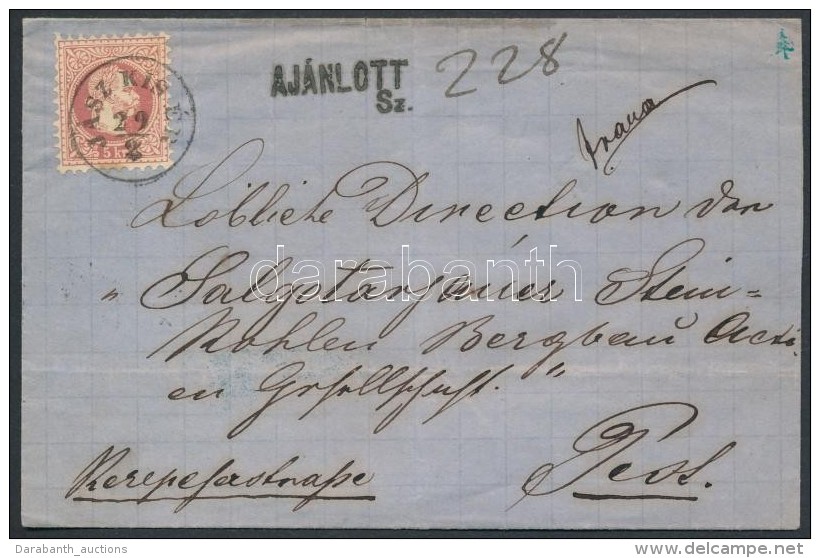 JÁSZ KIS ÉR
29
2
5 kr
AJÁNLOTT
Sz. 228
franco
Löbliche Direction der
„ Salgotarjáner Stein=
Kohlen Bergbau Acti
en Gesellschaft. “
Kerepeserstraße Pest.
darabanth
Darabanth_auctions
delcampe.net